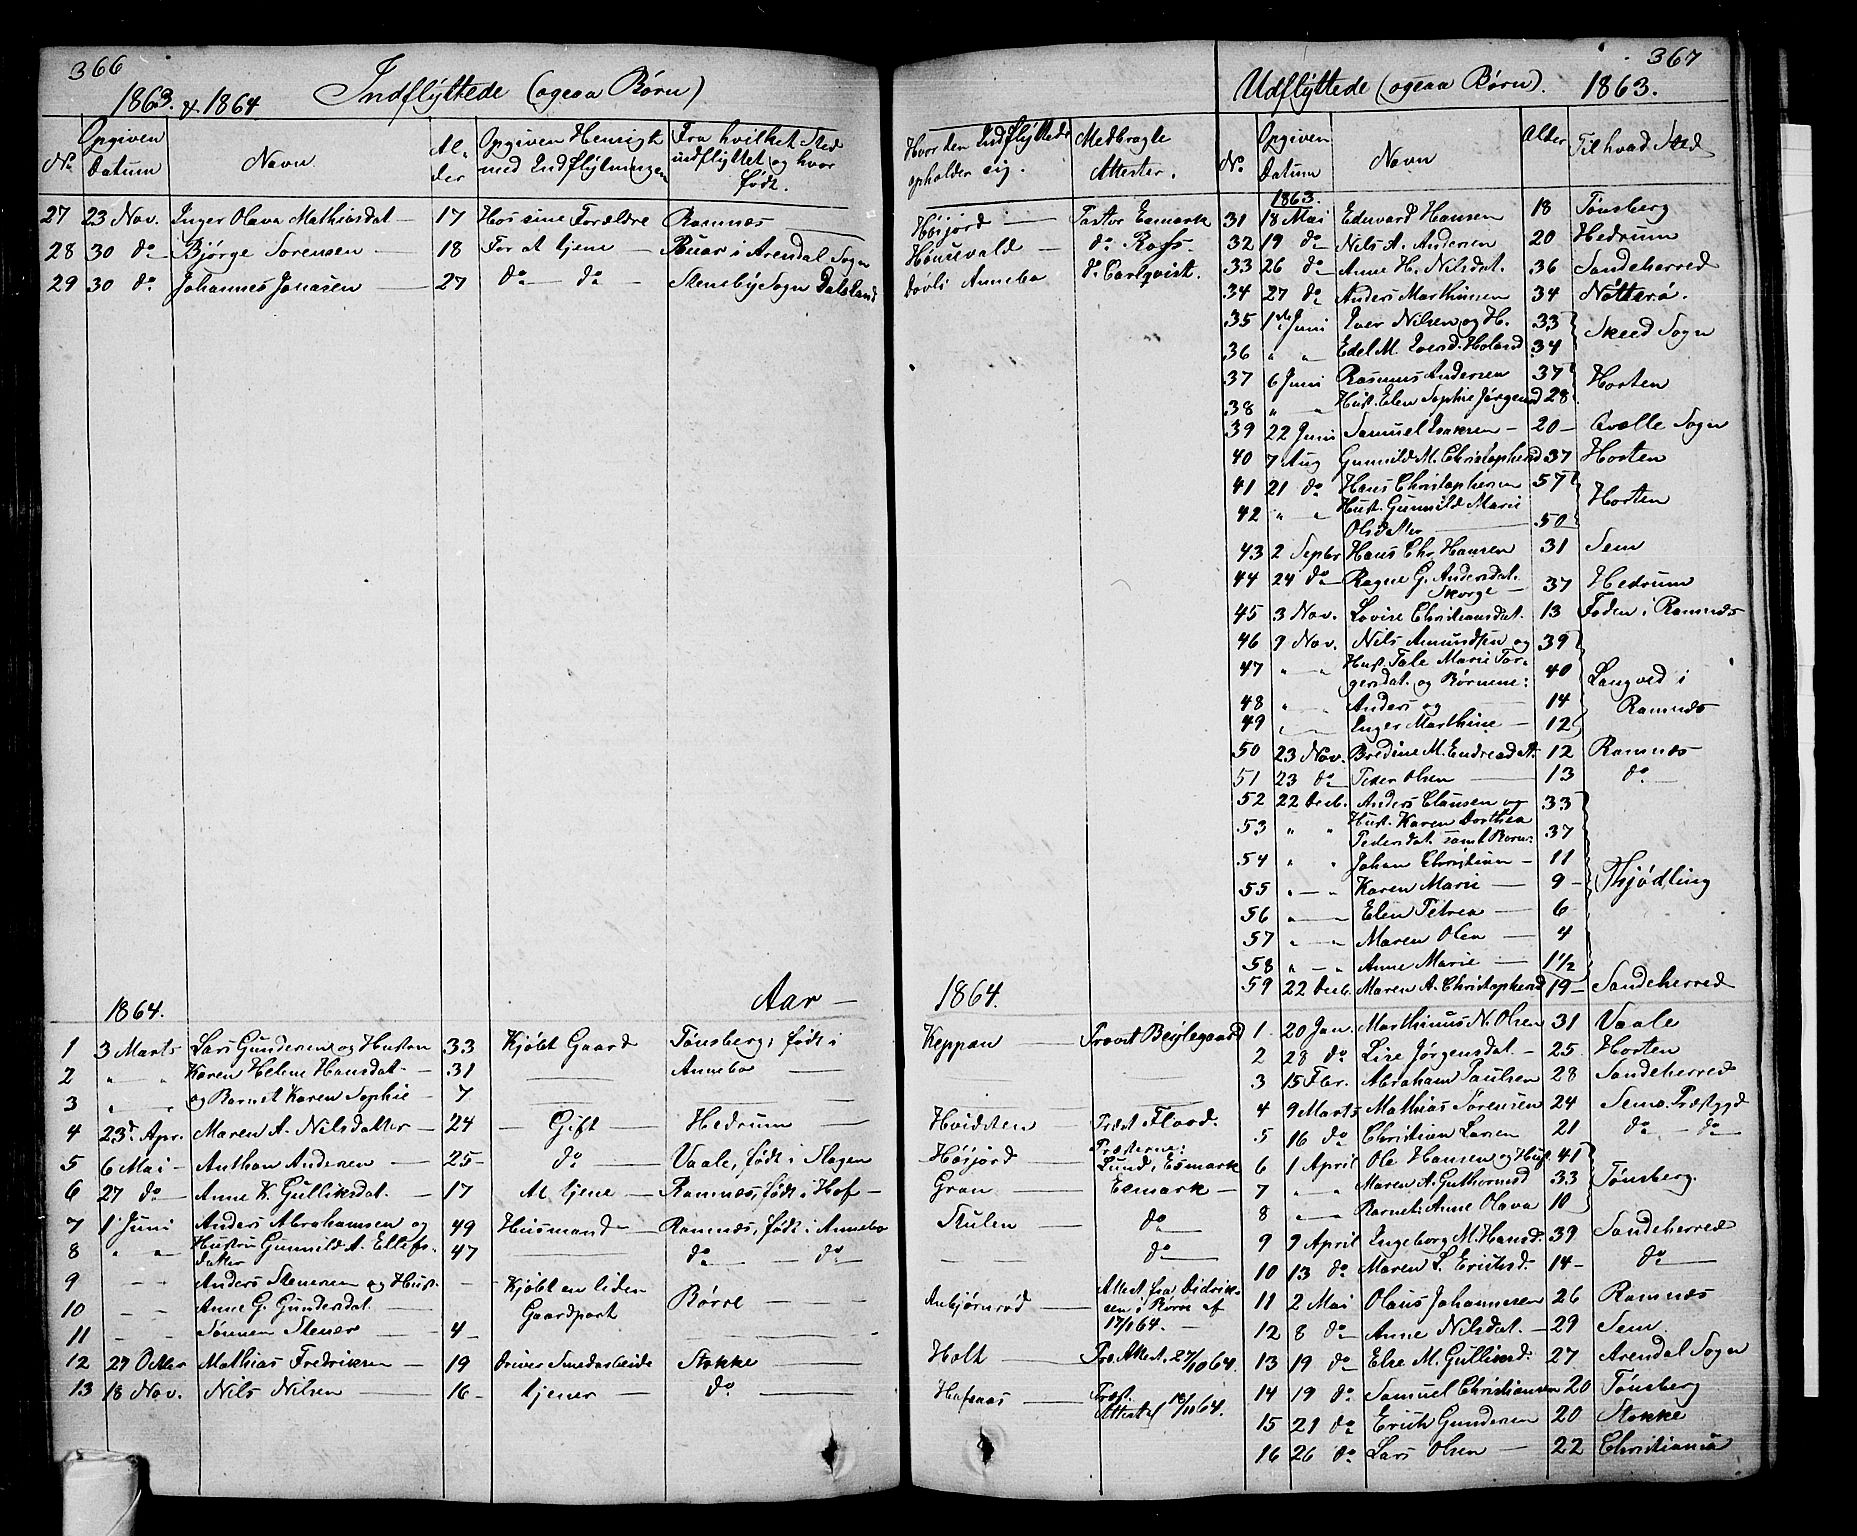 366
1863. & 1864 Indflyttede (ogsaa Børn)
No. Opgiven Datum Navn Alder Opgiven Hensigt med Indflytningen Fra hvilket Sted indflyttet og hvor født.
27 23 Nov. Inger Olava Mathiasdat — 17 Hos sine Forældre Ramnæs
28 30 do — Bjørge Sorensen — 18 For at tjene — Buar i Arendal Sogn
29 30 do Johannes Jonasen — 27 do — do — Steneby Sogn Dalsland
Aar —
1864.
1 3 Marts Lars Gundersen og Hustru 33 Kjøbt Gaard Tønsberg, født i
2 " " Karen Helene Hansdat. — 31 — Annebo —
3 " " og Barnet Karen Sophie — 7
4 23d Apr. Maren A. Nilsdatter — 24 — Gift — Hedrum —
5 6 Mai — Anthon Andersen — 25 — do — Vaale, født i Slagen
6 27 do — Anne K. Gulliksdat. — 17 At tjene — Ramnæs, født i Hof —
7 1 Juni Anders Abrahamsen og 49 Husmand — Ramnæs, født i Annebo
8 " " Hustru Gunnild A. Ellefs-
datter 47 do — do —
9 - - Anders Stenersen og Hust. — Kjøbt en liden
10 - - Anne G. Gundersdat Gaardpart Børre — —
11 - - Sønnen Stener — 4 —
12 27 Octbr Mathias Fredriksen — 19 Driver Smedarbeide Stokke —
13 18 Nov. Nils Nilsen — 16 — tjener — do —
Hvor den Indflyttede opholder sig. Medbragte Attester.
Høijord — Pastor Esmark
Hønsevald — do Rafs
Døvli Annebo do Carlqvist.
1864.
Keppan — Provst Beylegaard
Hvidsten — Præst Flood.
Høijord — Præsterne: Lund, Esmark
Gran — Esmark —
Skulen — do —
— — do —
Asbjørnrød — Attest fra Didrik-
sen i Børre af
17/1 64. —
Holt — Præ. Attest. 27/10 64.
Hafsaas — Præst.
Attest af 18/11 64.
367
Udflyttede (ogsaa Børn). 1863.
No. Opgiven Datum Navn Alder Til hvad Sted
1863.
31 18 Mai Edvard Hansen 18 Tønsberg
32 19 do — Nils A. Andersen 20 Hedrum
33 26 do — Anne H. Nilsdat. 36 Sandeherred
34 27 do Anders Marthinsen 34 Nøtterø.
35 1ste Juni Iver Nilsen og H. 33
36 " " Edel M. Iversd. Holand 34 Skeed Sogn
37 6 Juni Rasmus Andersen 37
38 " " Hust. Elen Sophie Jørgensd 28 Horten
39 22 Juni Samuel Isaksen — 20 — Qvelle Sogn
40 7 Aug Gunnild M. Christophersd 37 Horten
41 21 do Hans Christophersen 57
42 " " Hust. Gunnild Marie
Olsdatter — 50 Horten
43 2 Septbr Hans Chr. Hansen 31 Sem
44 24 do — Ragne G. Andersdat.
Skorge — 37 Hedrum
45 3 Nov. Lovise Christiansdat. 13 Faderen i Ramnæs
46 9 Nov. Nils Amundsen og 39
47 " " Hust. Tale Marie Tor-
gersdat. og Børnene: 40 Langved i
48 " " Anders og — 14 Ramnæs
49 " " Inger Marthine — 12
50 23 Nov. Bredine M. Endresdat. 12 Ramnæs
51 23 do — Peder Olsen — 13 do —
52 22 Decb. Anders Clausen og 33
53 " " Hust. Karen Dorthea
Pedersdat. samt Børn: 37
54 " " Johan Christian — 11
55 " — " Karen Marie — 9 — Thjødling
56 " — " Elen Petrea — 6
57 " — " Maren Olea — 4
58 " — " Anne Marie — 1 1/2
59 22 Decb. Maren A. Christophersd 19 — Sandeherred
1 20 Jan. Marthinus N. Olsen 31 Vaale
2 28 do Lise Jørgensdat. — 25 Horten
3 15 Fbr. Abraham Paulsen 28 Sandeherred
4 9 Marts Mathias Sorensen 24 Sems Præstegd
5 16 do Christian Larsen 21 do — do
6 1 April Ole Hansen og Hust. 41
7 " " Maren A. Guthormsd 33 Tønsberg.
8 " — Barnet: Anne Olava 10
9 9 April Ingeborg M. Hansd 39 Sandeherred
10 13 do Maren L. Ericksd. 14 — do
11 2 Mai Olaus Johannesen 26 Ramnæs
12 8 do — Anne Nilsdat. — 29 Sem.
13 19 do Else M. Gulliksd. 27 Arendal Sogn
14 19 do Samuel Christiansen 20 Tønsberg
15 21 do Erich Gundersen 20 Stokke
16 26 do Lars Olsen — 22 Christiania